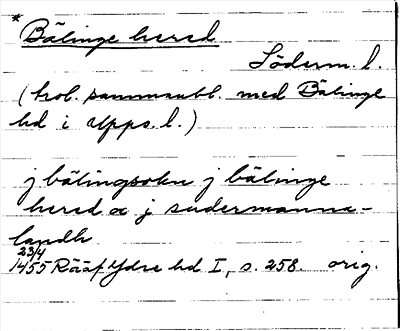 * Bälinge herad
Söderm. l.
(trol. sammanbl. med Bälinge
hd i Upps. l.)
j bälingsokn j bälinge
herad a j sudermanna-
landh
23/4
1455 Rääf Ydre hd I, s. 258. orig.